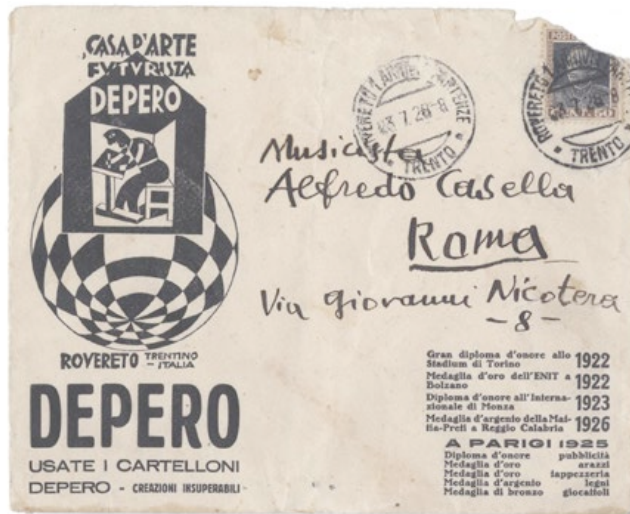 CASA D'ARTE
FVTVRISTA
DEPERO
ROVERETO TRENTINO – ITALIA
DEPERO
USATE I CARTELLONI
DEPERO - CREAZIONI INSUPERABILI
ROVERETO 1 ARRIVI PARTENZE
03 7 28-8
TRENTO
POSTE
ROVERETO 1
03 7 28-8
TRENTO
Musicista
Alfredo Casella
Roma
Via Giovanni Nicotera
- 8 -
Gran diploma d'onore allo
Stadium di Torino 1922
Medaglia d'oro dell'ENIT a
Bolzano 1922
Diploma d'onore all'Interna-
zionale di Monza 1923
Medaglia d'argento della Mat-
tia-Preti a Reggio Calabria 1926
A PARIGI 1925
Diploma d'onore pubblicità
Medaglia d'oro arazzi
Medaglia d'oro tappezzeria
Medaglia d'argento legni
Medaglia di bronzo giocattoli